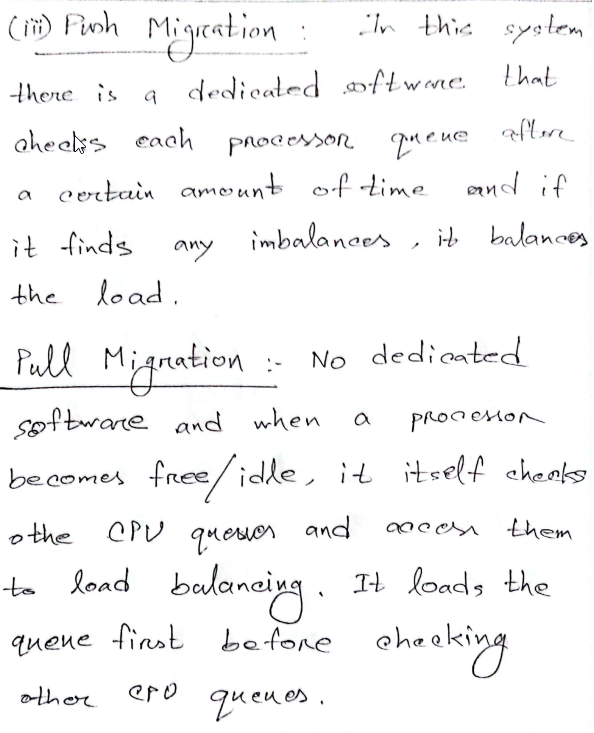 (iii) Push Migration : In this system
there is a dedicated software that
checks each processor queue after
a certain amount of time and if
it finds any imbalances, it balances
the load.
Pull Migration :- No dedicated
software and when a processor
becomes free/idle, it itself checks
othe CPU queues and access them
to load balancing. It loads the
queue first before checking
other CPU queues.